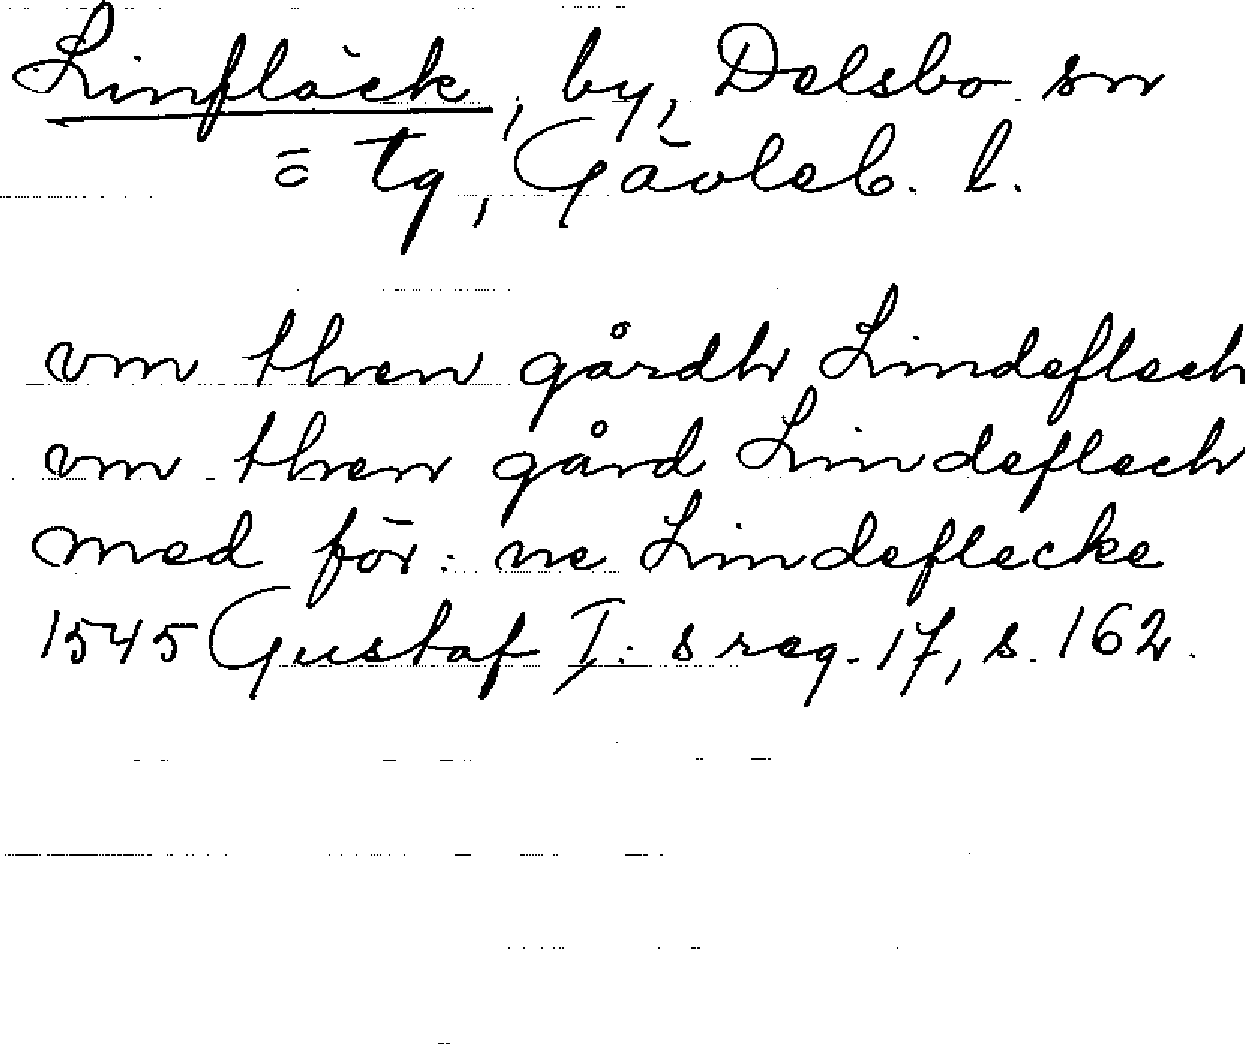 Linfläck, by, Delsbo sn
ō tg, Gävleb. l.
vm then gårdh Lindeflech
vm then gård Lindeflech
med för: ne Lindeflecke
1545 Gustaf I: s reg. 17, s. 162.